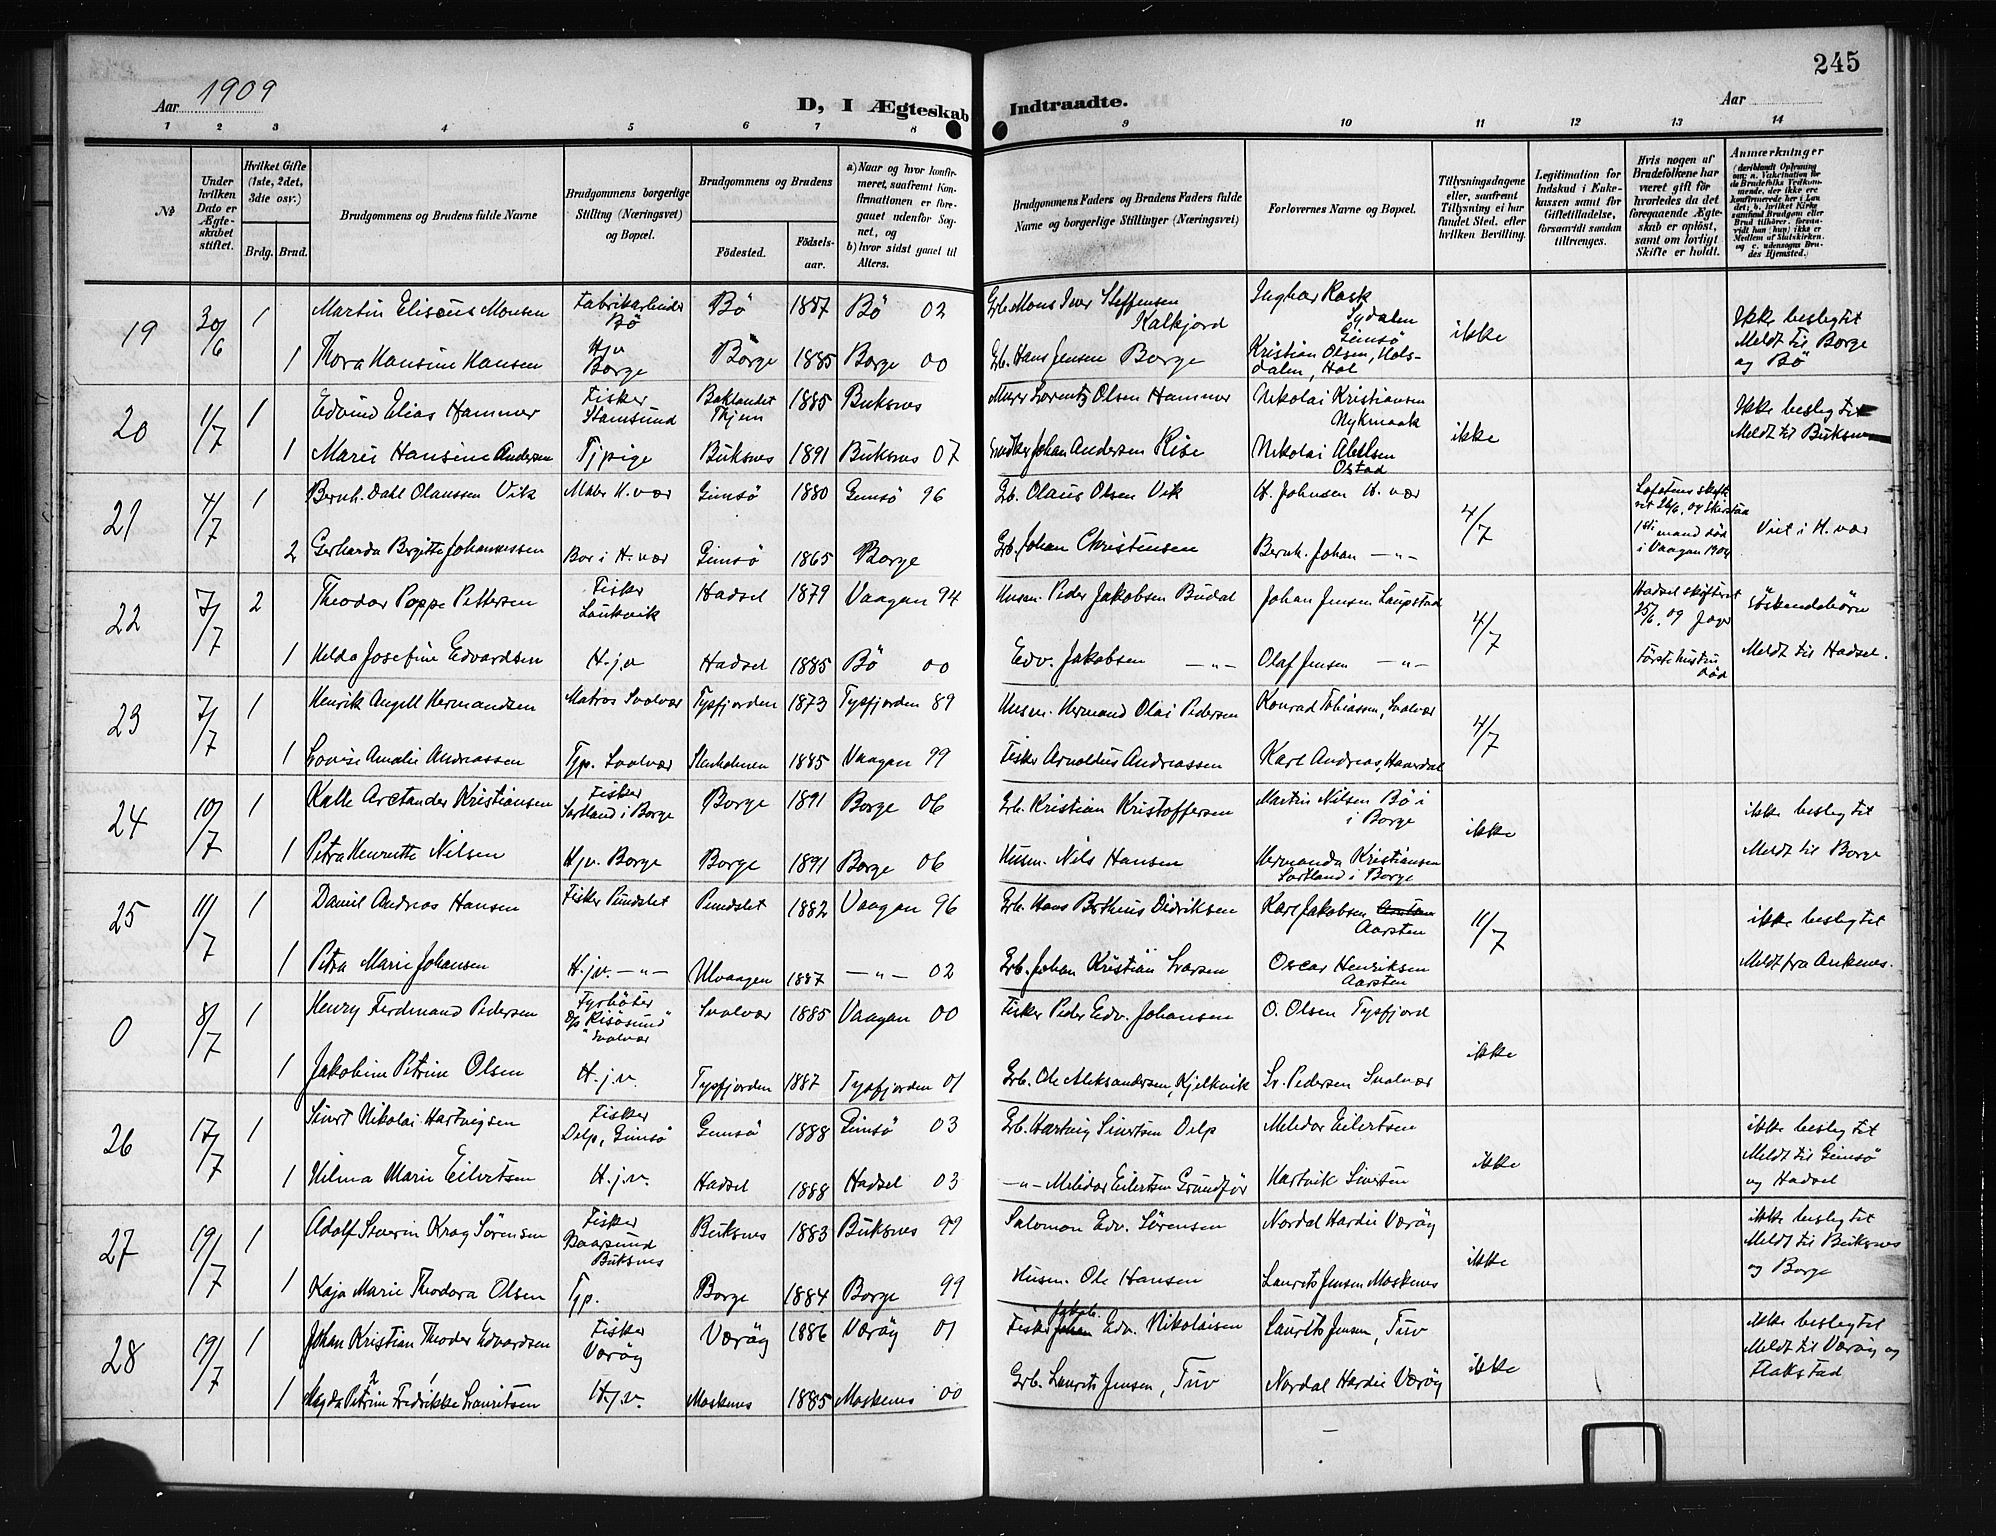 245
Aar 1909
D, I Ægteskab Indtraadte.
Aar
1 2 3 4 5 6 7 8 9 10 11 12 13 14
№
Under hvilken Dato er Ægteskabet stiftet.
Hvilket Gifte (1ste, 2det, 3die osv.)
Brdg. Brud.
Brudgommens og Brudens fulde Navne
Brudgommens borgerlige Stilling (Næringsvei) og Bopæl.
Brudgommens og Brudens
Födested.
Födselsaar.
a) Naar og hvor konfirmeret, saafremt Konfirmationen er foregaaet udenfor Sognet, og
b) hvor sidst gaaet til Alters.
Brudgommens Faders og Brudens Faders fulde Navne og borgerlige Stillinger (Næringsvei)
Forlovernes Navne og Bopæl.
Tillysningsdagene eller, saafremt Tillysning ei har fundet Sted, efter hvilken Bevilling.
Legitimation for Indskud i Enkekassen samt for Giftetilladelse, forsaavidt saadan tiltrænges.
Hvis nogen af Brudefolkene har været gift för hvorledes da det foregaaende Ægteskab er oplöst, samt om lovligt Skifte er holdt.
Anmærkninger
19 30/6 1 Martin Eliseus Monsen Fabrikarbeider Bö Bö 1887 Bö 02 Grb. Mons Iver Steffensen Kalkjord Ingbar Rask Sydalen Gimsö ikke Ikke beslegtet Meldt til Borge og Bö
1 Thora Hansine Hansen Hjv Borge Borge 1885 Borge 00 Grb. Hans Jensen Borge Kristian Olsen, Holsdalen, Hol
20 1/7 1 Edvind Elias Hammer Fisker Stamsund Baklandet Thjem 1885 Buksnes Murer Lorents Olsen Hammer Nikolai Kristiansen Nykmark ikke Ikke beslegtet Meldt til Buksnes
1 Marie Hansine Andersen Tjpige Buksnes 1891 Buksnes 07 Johan Andersen Rise Nikolai Abelsen Ostad
21 4/7 1 Bernh. Dahl Olaussen Vik Maler H.vær Gimsö 1880 Gimsö 96 Gb. Olaus Olsen Vik H. Johnsen H. vær 4/7 1ste mand död i Vaagan 1904 Viet i H. vær
2 Gerharda Bergitte Johannessen Bor i H.vær Gimsö 1865 Borge Grb. Johan Christensen Bernh. Johan —"—
22 7/7 2 Theodor Poppe Pettersen Fisker Laukvik Hadsel 1879 Vaagan 94 Husm. Peder Jakobsen Budal Johan Jensen Laupstad 4/7 Hadsel skifteret 25/6. 09 Söskendebörn
1 Helda Josefine Edvardsen H.j.v Hadsel 1885 Bö 00 Edv. Jakobsen —"— Olaf Jensen —"— Förste hustru död Meldt til Hadsel.
23 7/7 1 Henrik Angell Hermandsen Matros Svolvær Tysfjorden 1873 Tysfjorden 89 Husm. Hermand Olai Pedersen Konrad Tobiassen, Svolvær 4/7
1 Lovise Amalie Andreassen Tjp. Svolvær 1885 Vaagan 99 Fisker Arnoldus Andreassen Karl Andreas, Haverdal
24 10/7 1 Kalle Arctander Kristiansen Fisker Sortland i Borge Borge 1891 Borge 06 Grb. Kristian Kristoffersen Martin Nilsen Bö i i Borge ikke ikke beslegtet
1 Petra Henrette Nilsen Hjv. Borge Borge 1891 Borge 06 Husm. Nils Hansen Hermanda Kristiansen Sortland i Borge Meldt til Borge
25 11/7 1 Daniel Andreas Hansen Fisker Pundslet Pundslet 1882 Vaagan 96 Grb. Hans Bertheus Didriksen Karl Jakobsen Aarsten 11/7 ikke beslegtet
1 Petra Marie Johansen H.jv. —"— Ulvaagen 1887 —"— 02 Grb. Johan Kristian Larsen Oscar Henriksen Aarsten Meldt fra Ankenes.
0 8/7 1 Henry Ferdinand Pedersen Fyrböter D/S "Risösund" Svolvær Svolvær 1885 Vaagan 00 Fisker Peder Edv. Johansen O. Olsen Tysfjord ikke
1 Jakobine Petrine Olsen H.j.v. Tysfjorden 1887 Tysfjorden 01 Grb. Ole Aleksandersen, Kjelkvik Sv. Pedersen Svolvær
26 17/7 1 Sivert Nikolai Hartvigsen Fisker Delp, Gimsö Gimsö 1888 Gimsö 03 Grb. Hartvig Sivertsen Delp Melidor Eilertsen ikke ikke beslegtet Meldt til Gimsö og Hadsel
1 Hilma Marie Eilertsen H.j.v. Hadsel 1888 Hadsel 03 —"— Melidor Eilertsen Grundför Hartvik Sivertsen
27 19/7 1 Adolf Severin Krog Sörensen Fisker Buksnes Buksnes 1883 Buksnes 99 Salomon Edv. Sörensen Nordal Hardie Værög ikke ikke beslegtet Meldt til Buksnes og Borge
1 Kaja Marie Theodora Olsen Tjp. Borge 1884 Borge 99 Husm. Ole Hansen Laurits Jensen Moskenes
28 19/7 1 Johan Kristian Theodor Edvardsen Fisker Værög Værög 1886 Værög 01 Fisker Jakob Edv. Nikolaisen Laurits Jensen, Tuv ikke ikke beslegtet Meldt til Værög og Flakstad
1 Magda Petrine 2 Fredrikke 1 Lauritsen H.j.v. Moskenes 1885 Moskenes 00 Grb. Laurits Jensen, Tuv Nordal Hardie Værög